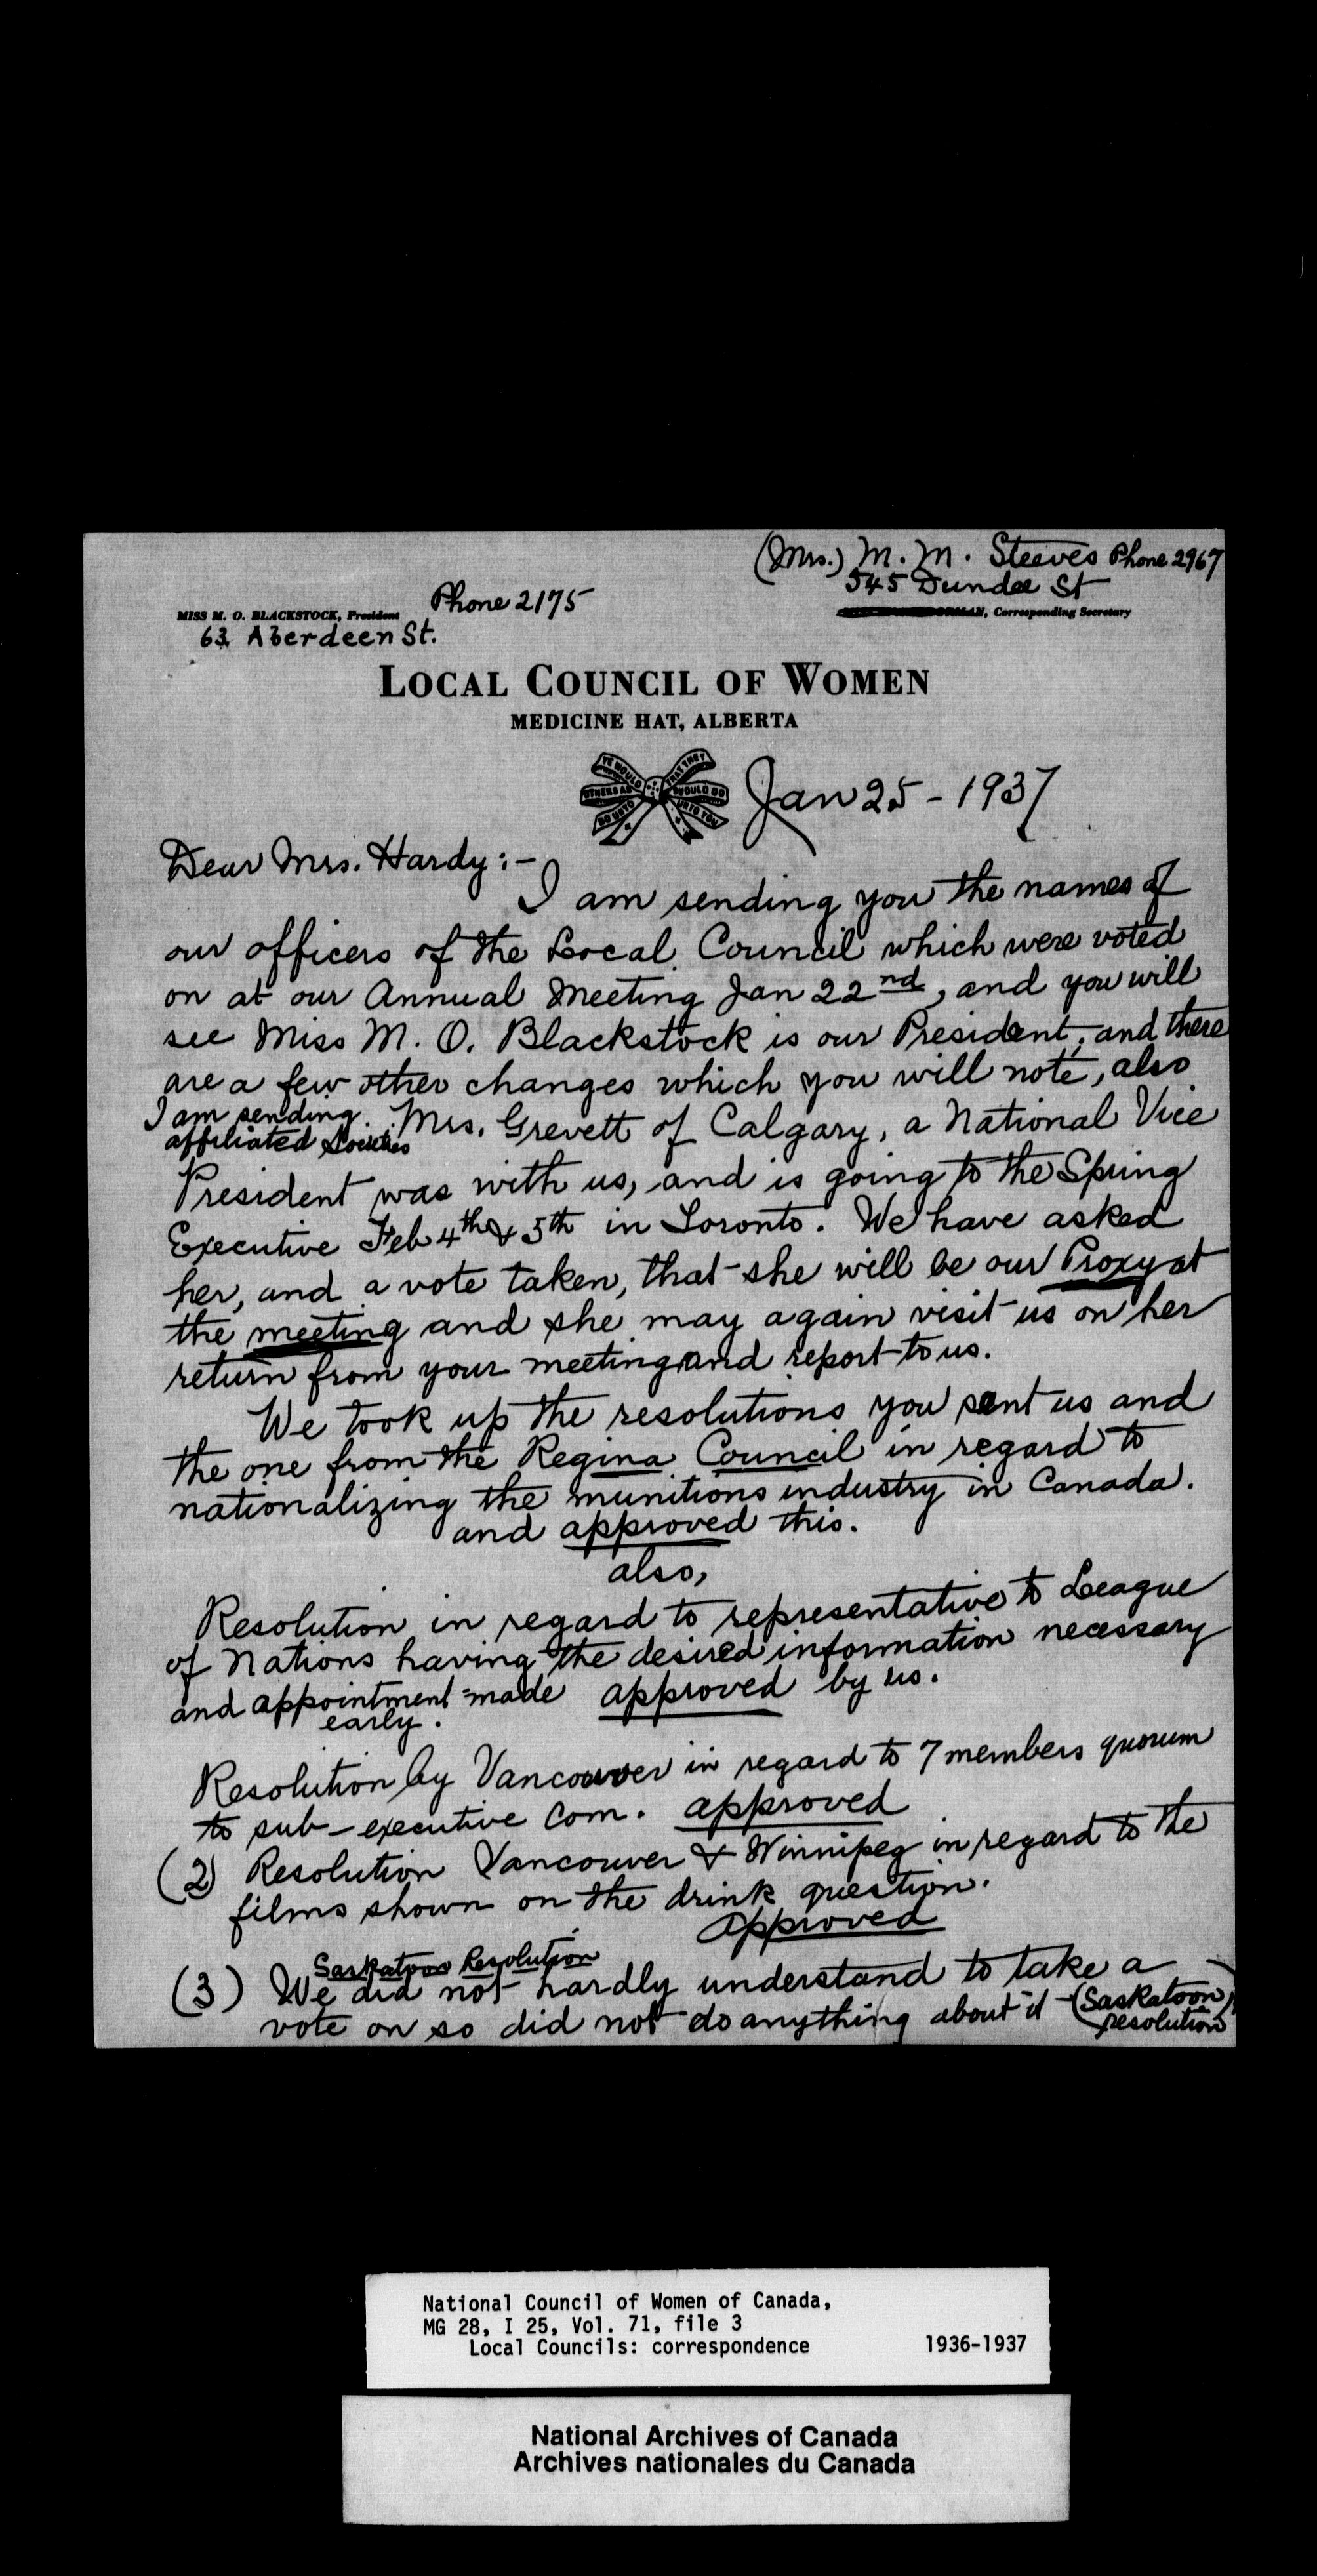 (Mrs.) M. M. Steeves Phone 2967
545 Dundee St
Phone 2175
MISS M. O. BLACKSTOCK, President
, Corresponding Secretary
63 Aberdeen St.
LOCAL COUNCIL OF WOMEN
MEDICINE HAT, ALBERTA
YE WOULD THAT THEY
OTHERS AS SHOULD DO
DO UNTO UNTO YOU
Jan 25 - 1937
Dear Mrs. Hardy :-
I am sending you the names of
our officers of the Local Council which were voted
on at our Annual Meeting Jan 22nd, and you will
see Miss M. O. Blackstock is our President, and there
are a few other changes which you will note, also
I am sending
affiliated Societies
Mrs. Grevett of Calgary, a National Vice
President was with us, and is going to the Spring
Executive Feb 4th & 5th in Toronto. We have asked
her, and a vote taken, that she will be our Proxy at
the meeting and she may again visit us on her
return from your meeting and report to us.
We took up the resolutions you sent us and
the one from the Regina Council in regard to
nationalizing the munitions industry in Canada.
and approved this.
also,
Resolution in regard to representative to League
of Nations having the desired information necessary
and appointment made approved by us.
early.
Resolution by Vancouver in regard to 7 members quorum
to sub-executive Com. approved
(2) Resolution Vancouver & Winnipeg in regard to the
films shown on the drink question.
approved
Saskatoon Resolution
(3) We did not hardly understand to take a
vote on so did not do anything about it (Saskatoon
resolution)
National Council of Women of Canada,
MG 28, I 25, Vol. 71, file 3
Local Councils: correspondence 1936-1937
National Archives of Canada
Archives nationales du Canada